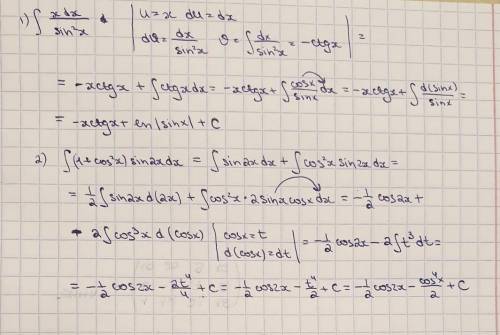 1) ∫ x dx / sin²x | u = x du = dx
dϑ = dx/sin²x ϑ = ∫ dx/sin²x = -ctgx | =
= -xctgx + ∫ctgxdx = -xctgx + ∫ cosx/sinx dx = -xctgx + ∫ d(sinx)/sinx =
= -xctgx + ln|sinx| + C
2) ∫(1+cos²x) sin2xdx = ∫sin2xdx + ∫cos²x sin2xdx =
= 1/2 ∫sin2xd(2x) + ∫cos²x • 2sinxcosxdx = -1/2 cos2x +
- 2∫cos³x d(cosx) | cosx = t
d(cosx) = dt | = -1/2 cos2x - 2∫t³dt =
= -1/2 cos2x - 2t⁴/4 + C = -1/2 cos2x - t⁴/2 + C = -1/2 cos2x - cos⁴x/2 + C